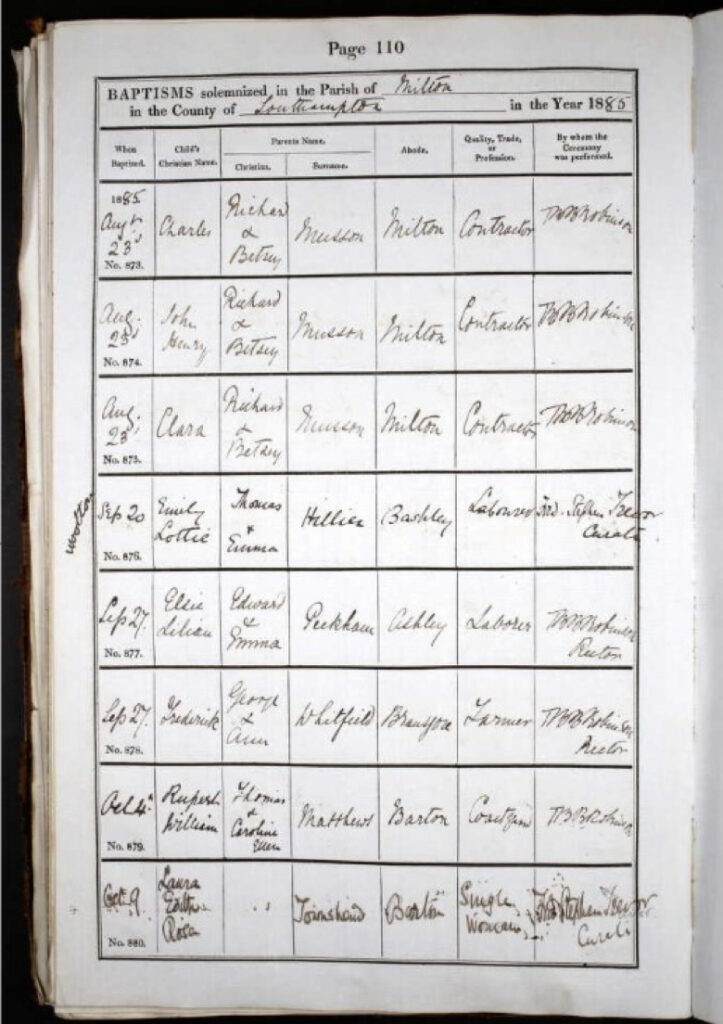 Page 110
BAPTISMS solemnized in the Parish of Milton
in the County of Southampton in the Year 1885
When Baptized.
Child's Christian Name.
Parents Name.
Christian.
Surname.
Abode.
Quality, Trade, or Profession.
By whom the Ceremony was performed.
1885
Augt
23d
No. 873.
Charles
Richard
&
Betsey
Musson
Milton
Contractor
Robinson
Aug.
23d
No. 874.
John
Henry
Richard
&
Betsey
Musson
Milton
Contractor
Robinson
Aug.
23
No. 875.
Clara
Richard
&
Betsey
Musson
Milton
Contractor
Robinson
Sep 20
No. 876.
Emily
Lottie
Thomas
&
Emma
Hillier
Bashley
Labourer
Stephen Trevor
Curate
Sep 27.
No. 877.
Elsie
Lilian
Edward
&
Emma
Peckham
Ashley
Laborer
Robinson
Rector
Sep 27.
No. 878.
Frederick
George
&
Ann
Whitfield
Bransgore
Farmer
Robinson
Rector
Oct 4th
No. 879.
Rupert
William
Thomas
&
Caroline
Ellen
Matthews
Barton
Robinson
Oct. 9.
No. 880.
Laura
Edith
Rosa
Townshend
Barton
Single
Woman
Stephen Trevor
Curate